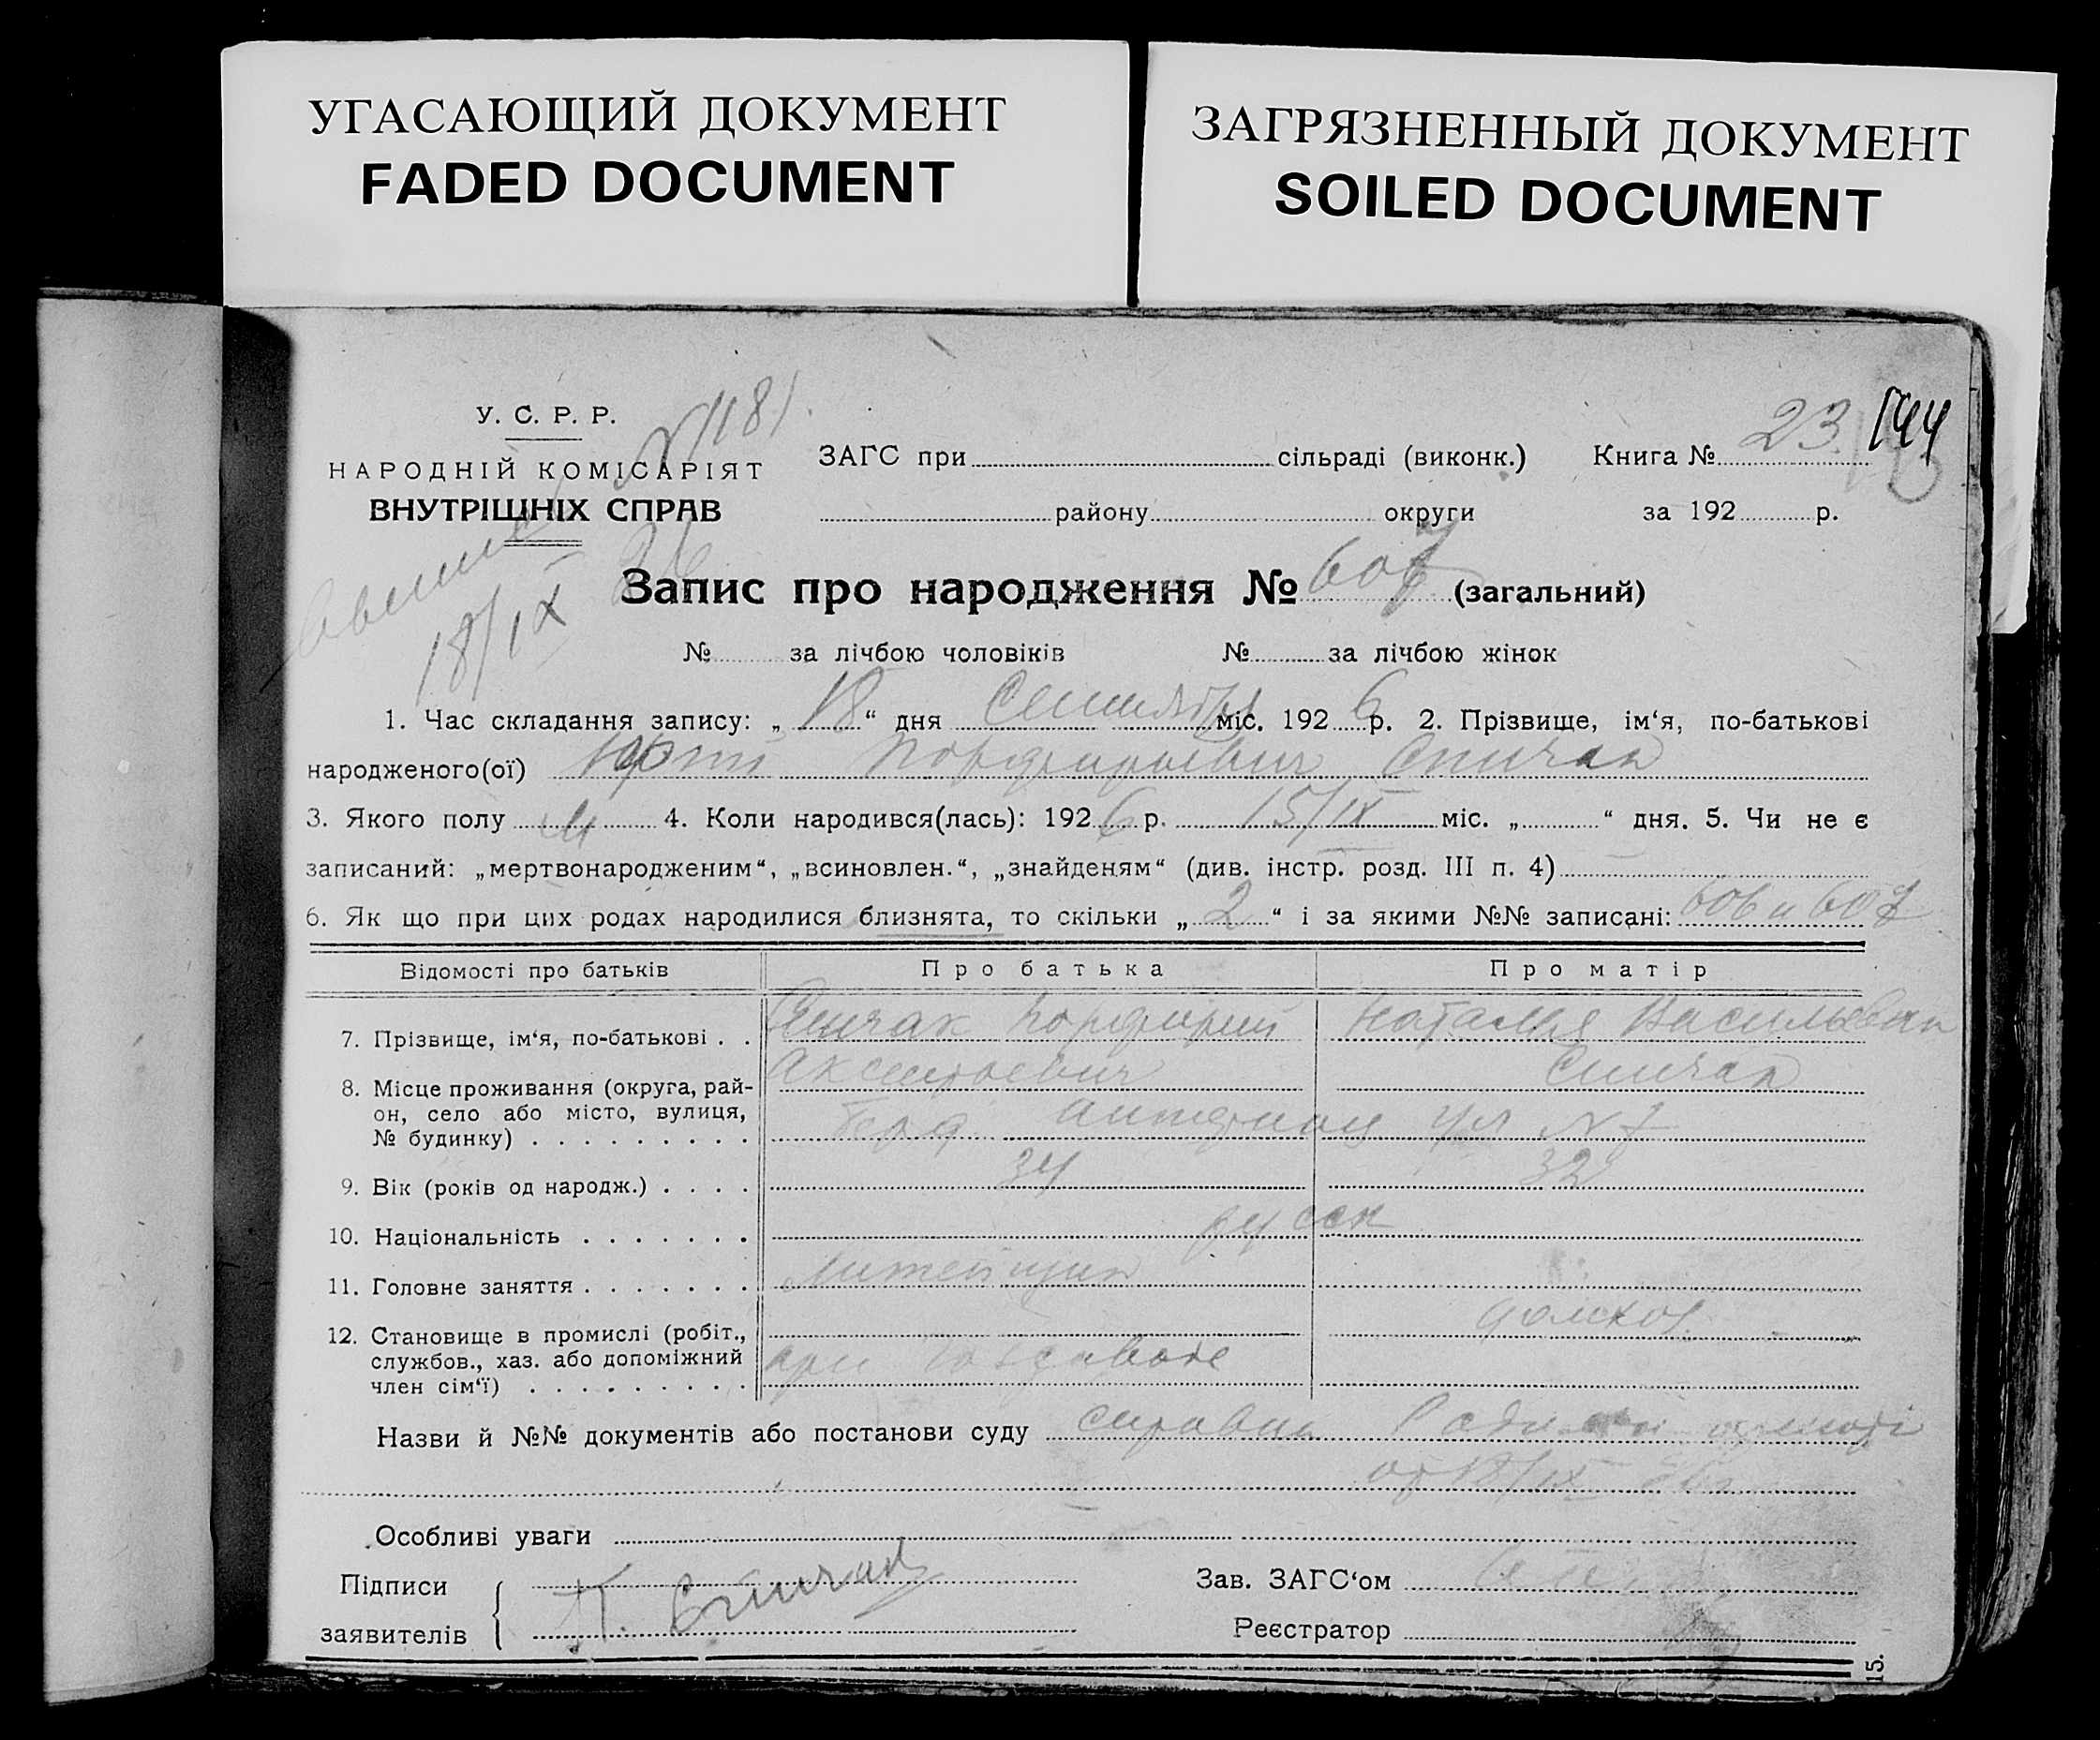 УГАСАЮЩИЙ ДОКУМЕНТ
FADED DOCUMENT
ЗАГРЯЗНЕННЫЙ ДОКУМЕНТ
SOILED DOCUMENT
У. С. Р. Р.
НАРОДНІЙ КОМІСАРІЯТ
ВНУТРІШНІХ СПРАВ
N 1181
18/IX 26
ЗАГС при сільраді (виконк.) Книга № 23 144
району округи за 192 р.
Запис про народження № 607 (загальний)
№ за лічбою чоловіків № за лічбою жінок
1. Час складання запису: „ 18 “ дня Сентября міс. 192 6 р. 2. Прізвище, ім‘я, по-батькові
народженого(ої) Порфирьевич Спичак
3. Якого полу м 4. Коли народився(лась): 192 6 р. 15/IX міс. „ “ дня. 5. Чи не є
записаний: „мертвонародженим“, „всиновлен.“, „знайденям“ (див. інстр. розд. III п. 4)
6. Як що при цих родах народилися близнята, то скільки „ 2 “ і за якими №№ записані: 606 и 607
Відомості про батьків Про батька Про матір
7. Прізвище, ім‘я, по-батькові . . Спичак Порфирий Наталья Васильевна
Аксентьевич Спичак
8. Місце проживання (округа, рай-
он, село або місто, вулиця,
№ будинку) . . . . . . . . . ул N 7
9. Вік (років од народж.) . . . . 34 32
10. Національність . . . . . . . русск
11. Головне заняття . . . . . . . Литейщик
домхоз.
12. Становище в промислі (робіт.,
службов., хаз. або допоміжний
член сім‘ї) . . . . . . . . .
Назви й №№ документів або постанови суду справка
от 18/IX
Особливі уваги
Підписи
заявителів П. Спичак
Зав. ЗАГС‘ом
Реєстратор
15.